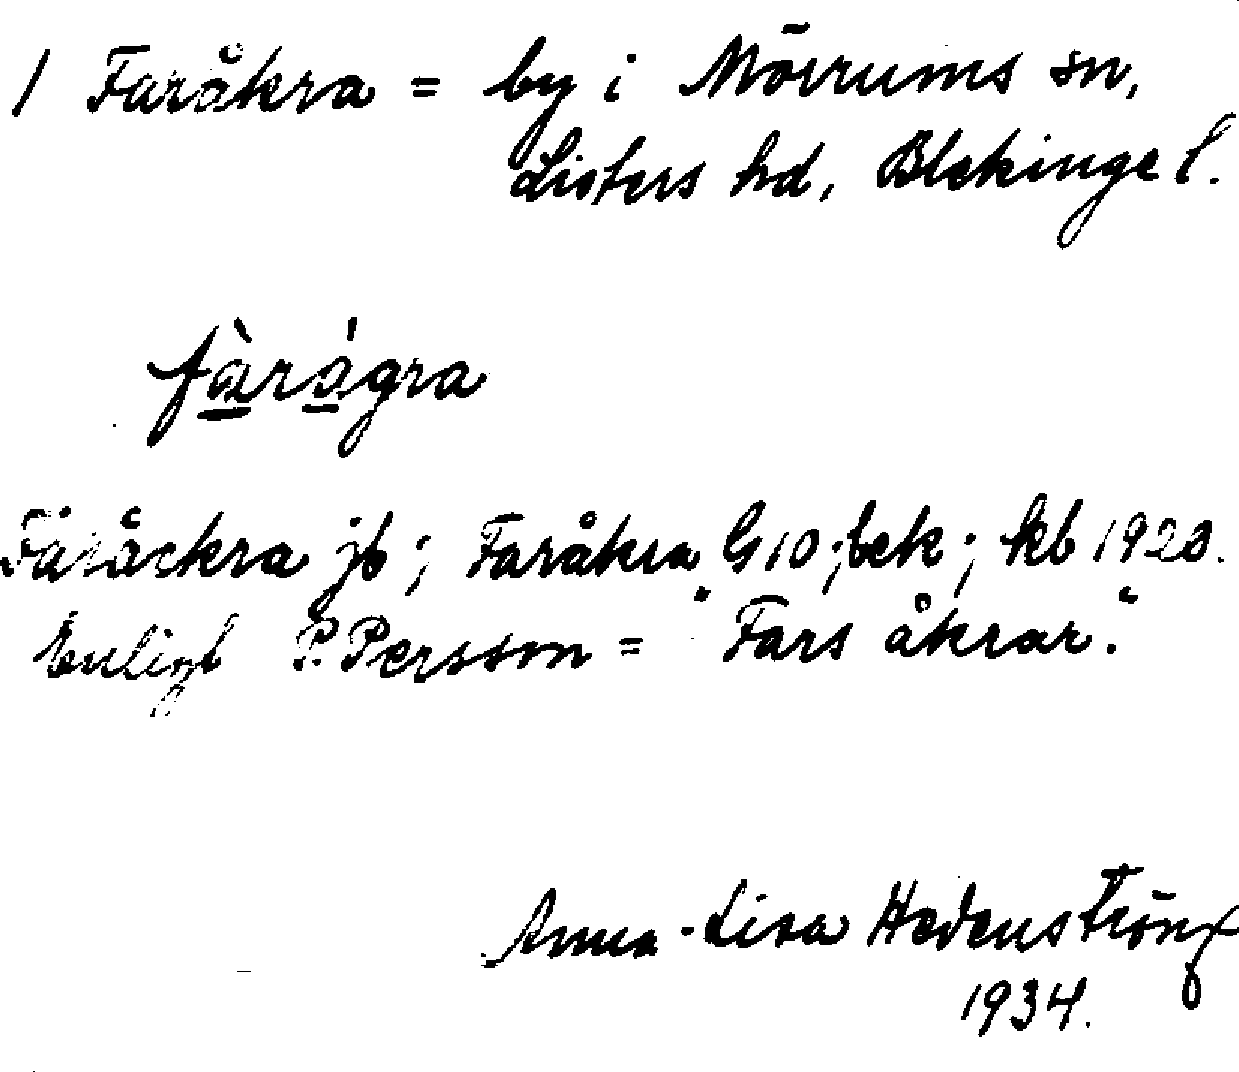 1 Faråkra = by i Mörrums sn,
Listers hd, Blekinge l.
fàrágra
Faråckra jb; Faråkra G10; bek; kb 1928.
Enligt P. Persson = "Fars åkrar."
Anna-Lisa Hedenström
1934.